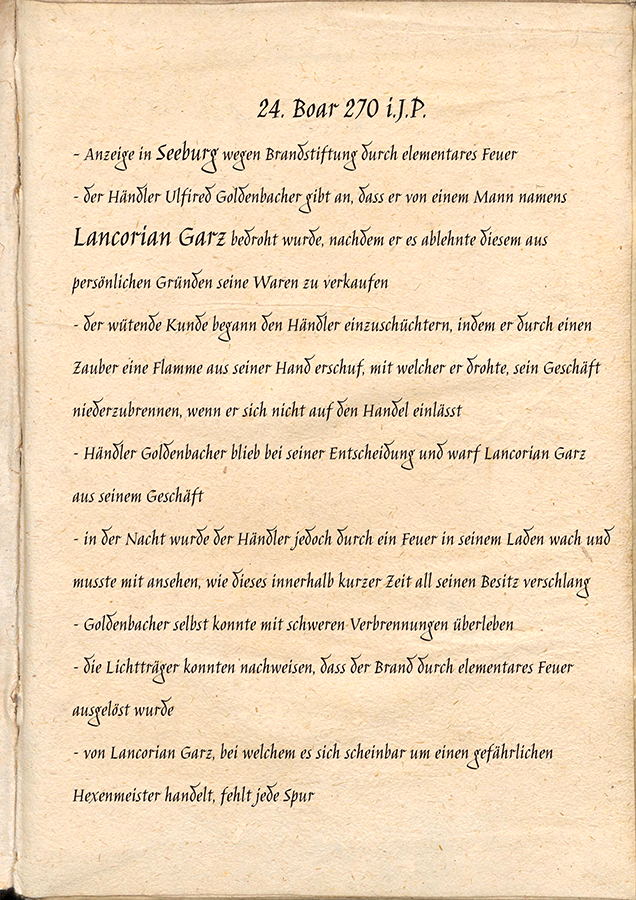 24. Boar 270 i.J.P.
- Anzeige in Seeburg wegen Brandstiftung durch elementares Feuer
- der Händler Ulfired Goldenbacher gibt an, dass er von einem Mann namens
Lancorian Garz bedroht wurde, nachdem er es ablehnte diesem aus
persönlichen Gründen seine Waren zu verkaufen
- der wütende Kunde begann den Händler einzuschüchtern, indem er durch einen
Zauber eine Flamme aus seiner Hand erschuf, mit welcher er drohte, sein Geschäft
niederzubrennen, wenn er sich nicht auf den Handel einlässt
- Händler Goldenbacher blieb bei seiner Entscheidung und warf Lancorian Garz
aus seinem Geschäft
- in der Nacht wurde der Händler jedoch durch ein Feuer in seinem Laden wach und
musste mit ansehen, wie dieses innerhalb kurzer Zeit all seinen Besitz verschlang
- Goldenbacher selbst konnte mit schweren Verbrennungen überleben
- die Lichtträger konnten nachweisen, dass der Brand durch elementares Feuer
ausgelöst wurde
- von Lancorian Garz, bei welchem es sich scheinbar um einen gefährlichen
Hexenmeister handelt, fehlt jede Spur